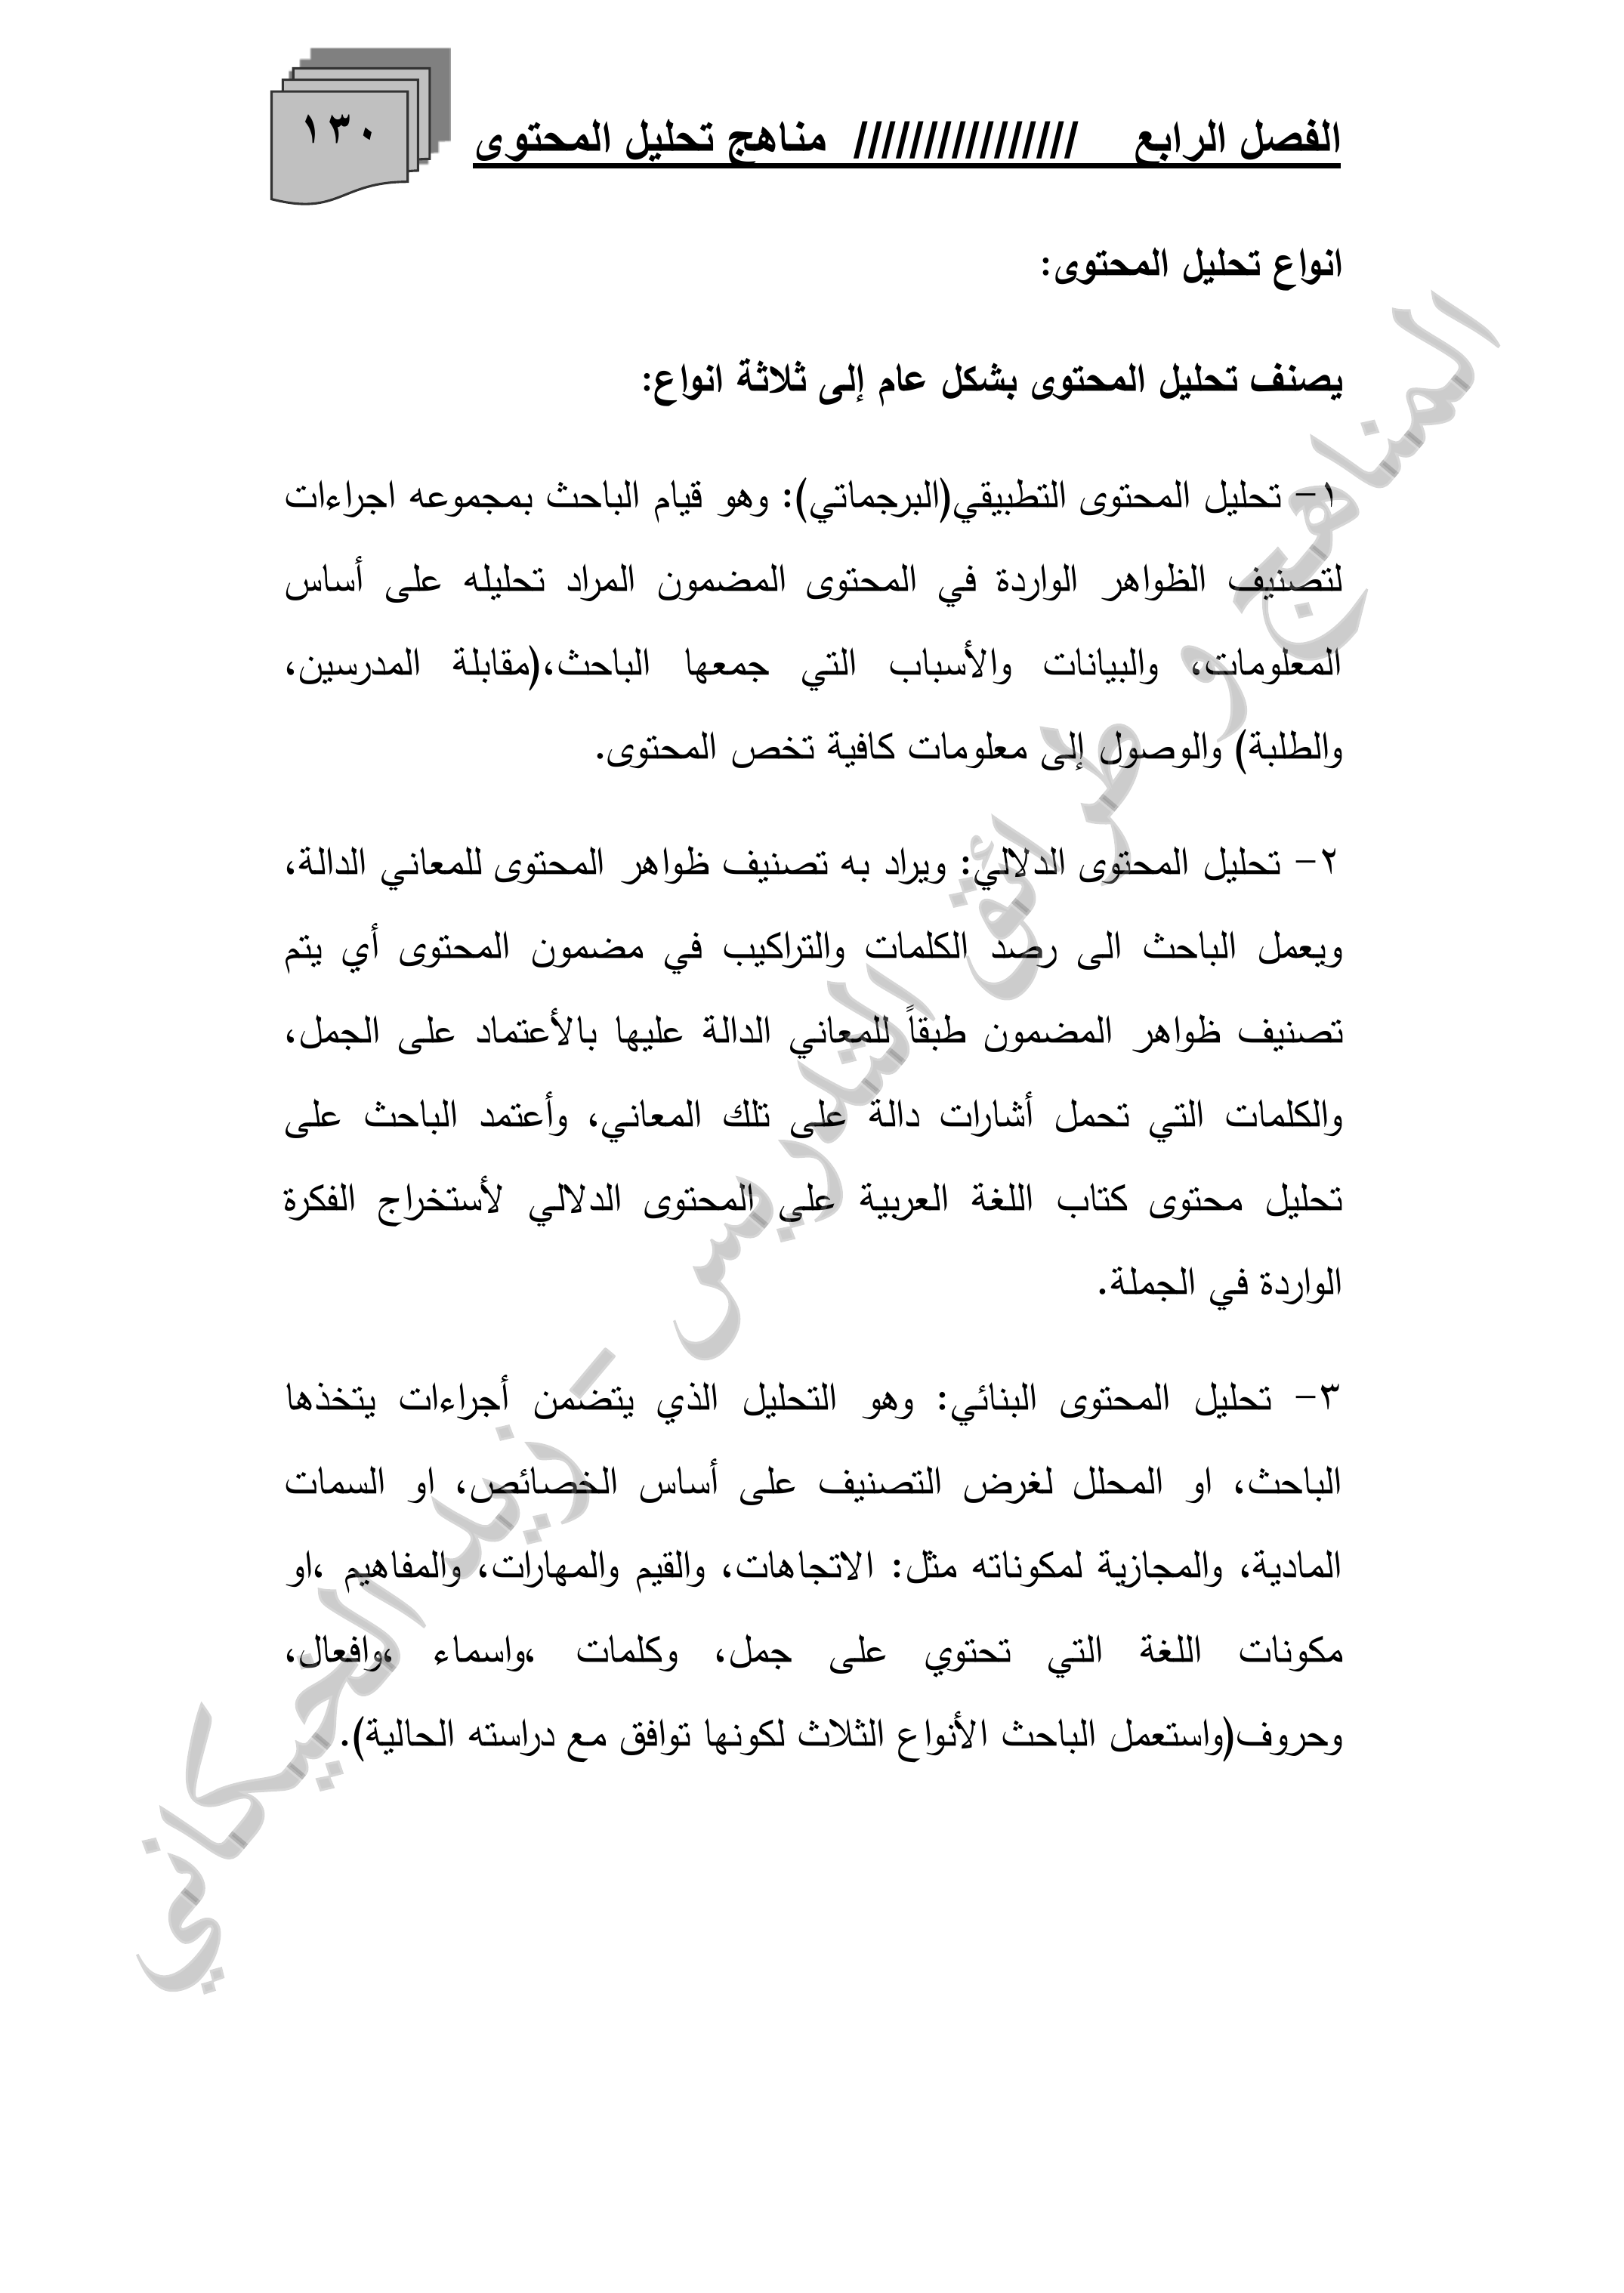 ١٣٠
الفصل الرابع //////////////// مناهج تحليل المحتوى
انواع تحليل المحتوى:
يصنف تحليل المحتوى بشكل عام إلى ثلاثة انواع:
١- تحليل المحتوى التطبيقي(البرجماتي): وهو قيام الباحث بمجموعه اجراءات
لتصنيف الظواهر الواردة في المحتوى المضمون المراد تحليله على أساس
المعلومات، والبيانات والأسباب التي جمعها الباحث،(مقابلة المدرسين،
والطلبة) والوصول إلى معلومات كافية تخص المحتوى.
٢- تحليل المحتوى الدلالي: ويراد به تصنيف ظواهر المحتوى للمعاني الدالة،
ويعمل الباحث الى رصد الكلمات والتراكيب في مضمون المحتوى أي يتم
تصنيف ظواهر المضمون طبقاً للمعاني الدالة عليها بالأعتماد على الجمل،
والكلمات التي تحمل أشارات دالة على تلك المعاني، وأعتمد الباحث على
تحليل محتوى كتاب اللغة العربية على المحتوى الدلالي لأستخراج الفكرة
الواردة في الجملة.
٣- تحليل المحتوى البنائي: وهو التحليل الذي يتضمن أجراءات يتخذها
الباحث، او المحلل لغرض التصنيف على أساس الخصائص، او السمات
المادية، والمجازية لمكوناته مثل: الاتجاهات، والقيم والمهارات، والمفاهيم ،او
مكونات اللغة التي تحتوي على جمل، وكلمات ،واسماء ،وافعال،
وحروف(واستعمل الباحث الأنواع الثلاث لكونها توافق مع دراسته الحالية).
المناهج و طرائق التدريس - زيد الخيكاني